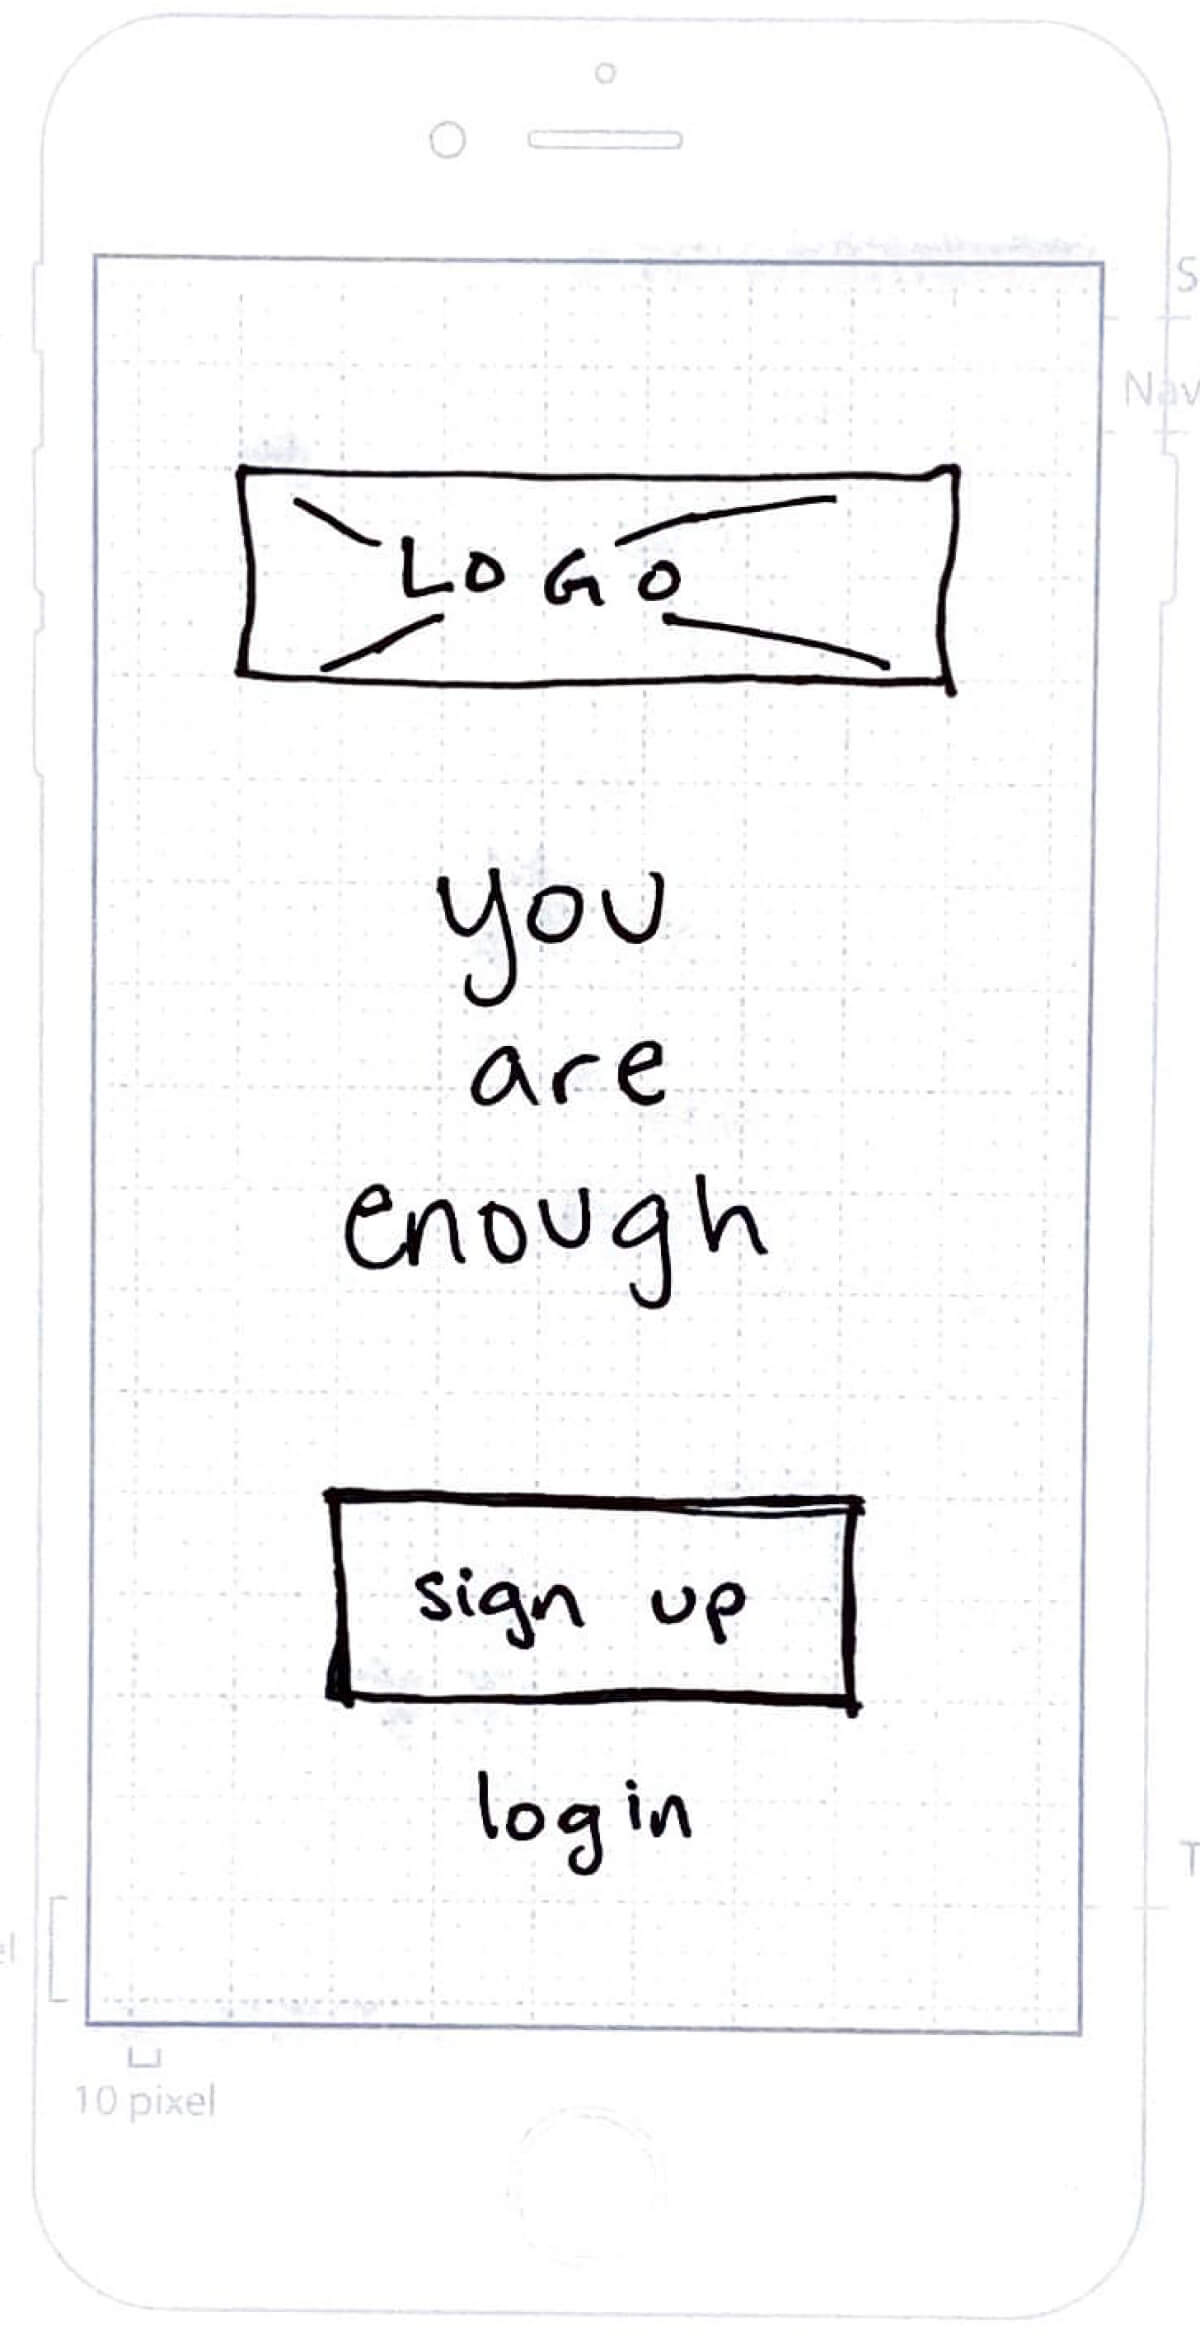 S
Nav
LOGO
you
are
enough
sign up
login
T
el
10 pixel